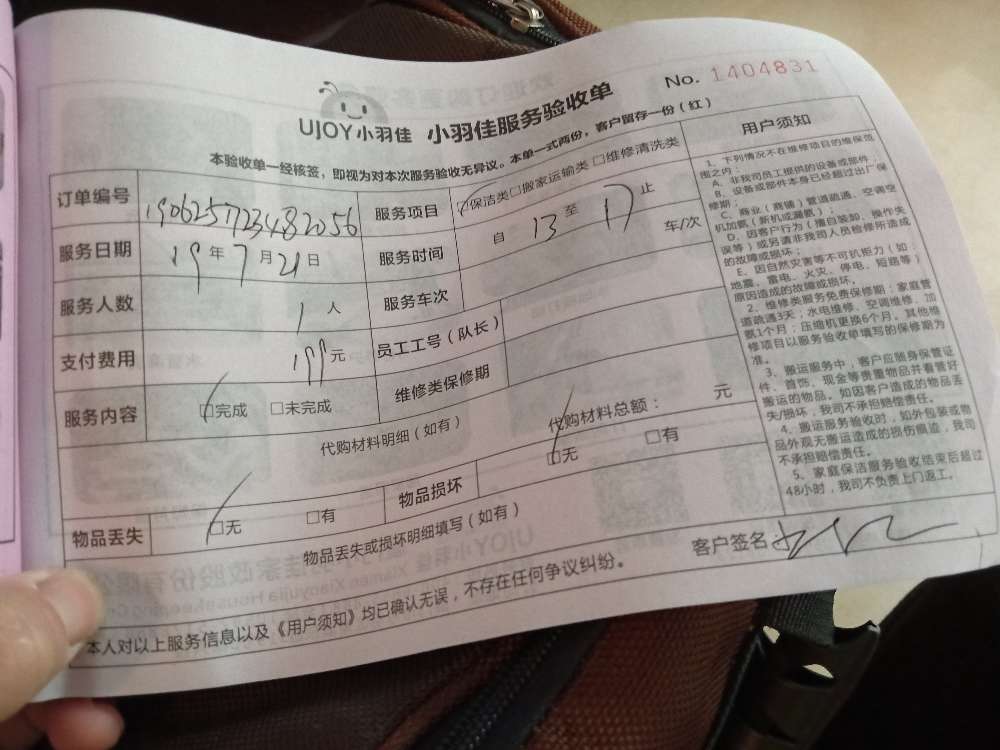 No. 1404831
UJOY小羽佳 小羽佳服务验收单
本验收单一经核签，即视为对本次服务验收无异议。本单一式两份，客户留存一份（红）
订单编号 190625723482056 服务项目 □保洁类□搬家运输类□维修清洗类
服务日期 19年7月21日 服务时间 自 13 至 17 止
服务人数 1人 服务车次 车/次
支付费用 199元 员工工号（队长）
服务内容 □完成 □未完成 维修类保修期
代购材料明细（如有） 代购材料总额： 元
物品丢失 □无 □有 物品损坏 □无 □有
物品丢失或损坏明细填写（如有）
本人对以上服务信息以及《用户须知》均已确认无误，不存在任何争议纠纷。
客户签名
用户须知
1、下列情况不在维修项目的维保范
围之内：
A、非我司员工提供的设备或部件；
B、设备或部件本身已经超过出厂保
修期；
C、商业（商铺）管道疏通、空调空
机加氨（新机或漏氨）；
D、因客户行为（擅自装卸、操作失
误等）或另请非我司人员检修所造成
的故障或损坏；
E、因自然灾害等不可抗拒力（如：
地震、雷电、火灾、停电、短路等）
原因造成的故障或损坏。
2、维修类服务免费保修期：家庭管
道疏通3天；水电维修、空调维修、加
氨1个月；压缩机更换6个月。其他维
修项目以服务验收单填写的保修期为
准。
3、搬运服务中，客户应随身保管证
件、首饰、现金等贵重物品并看管好
搬运的物品。如因客户造成的物品丢
失/损坏，我司不承担赔偿责任。
4、搬运服务验收时，如外包装或物
品外观无搬运造成的损伤痕迹，我司
不承担赔偿责任。
5、家庭保洁服务验收结束后超过
48小时，我司不负责上门返工。